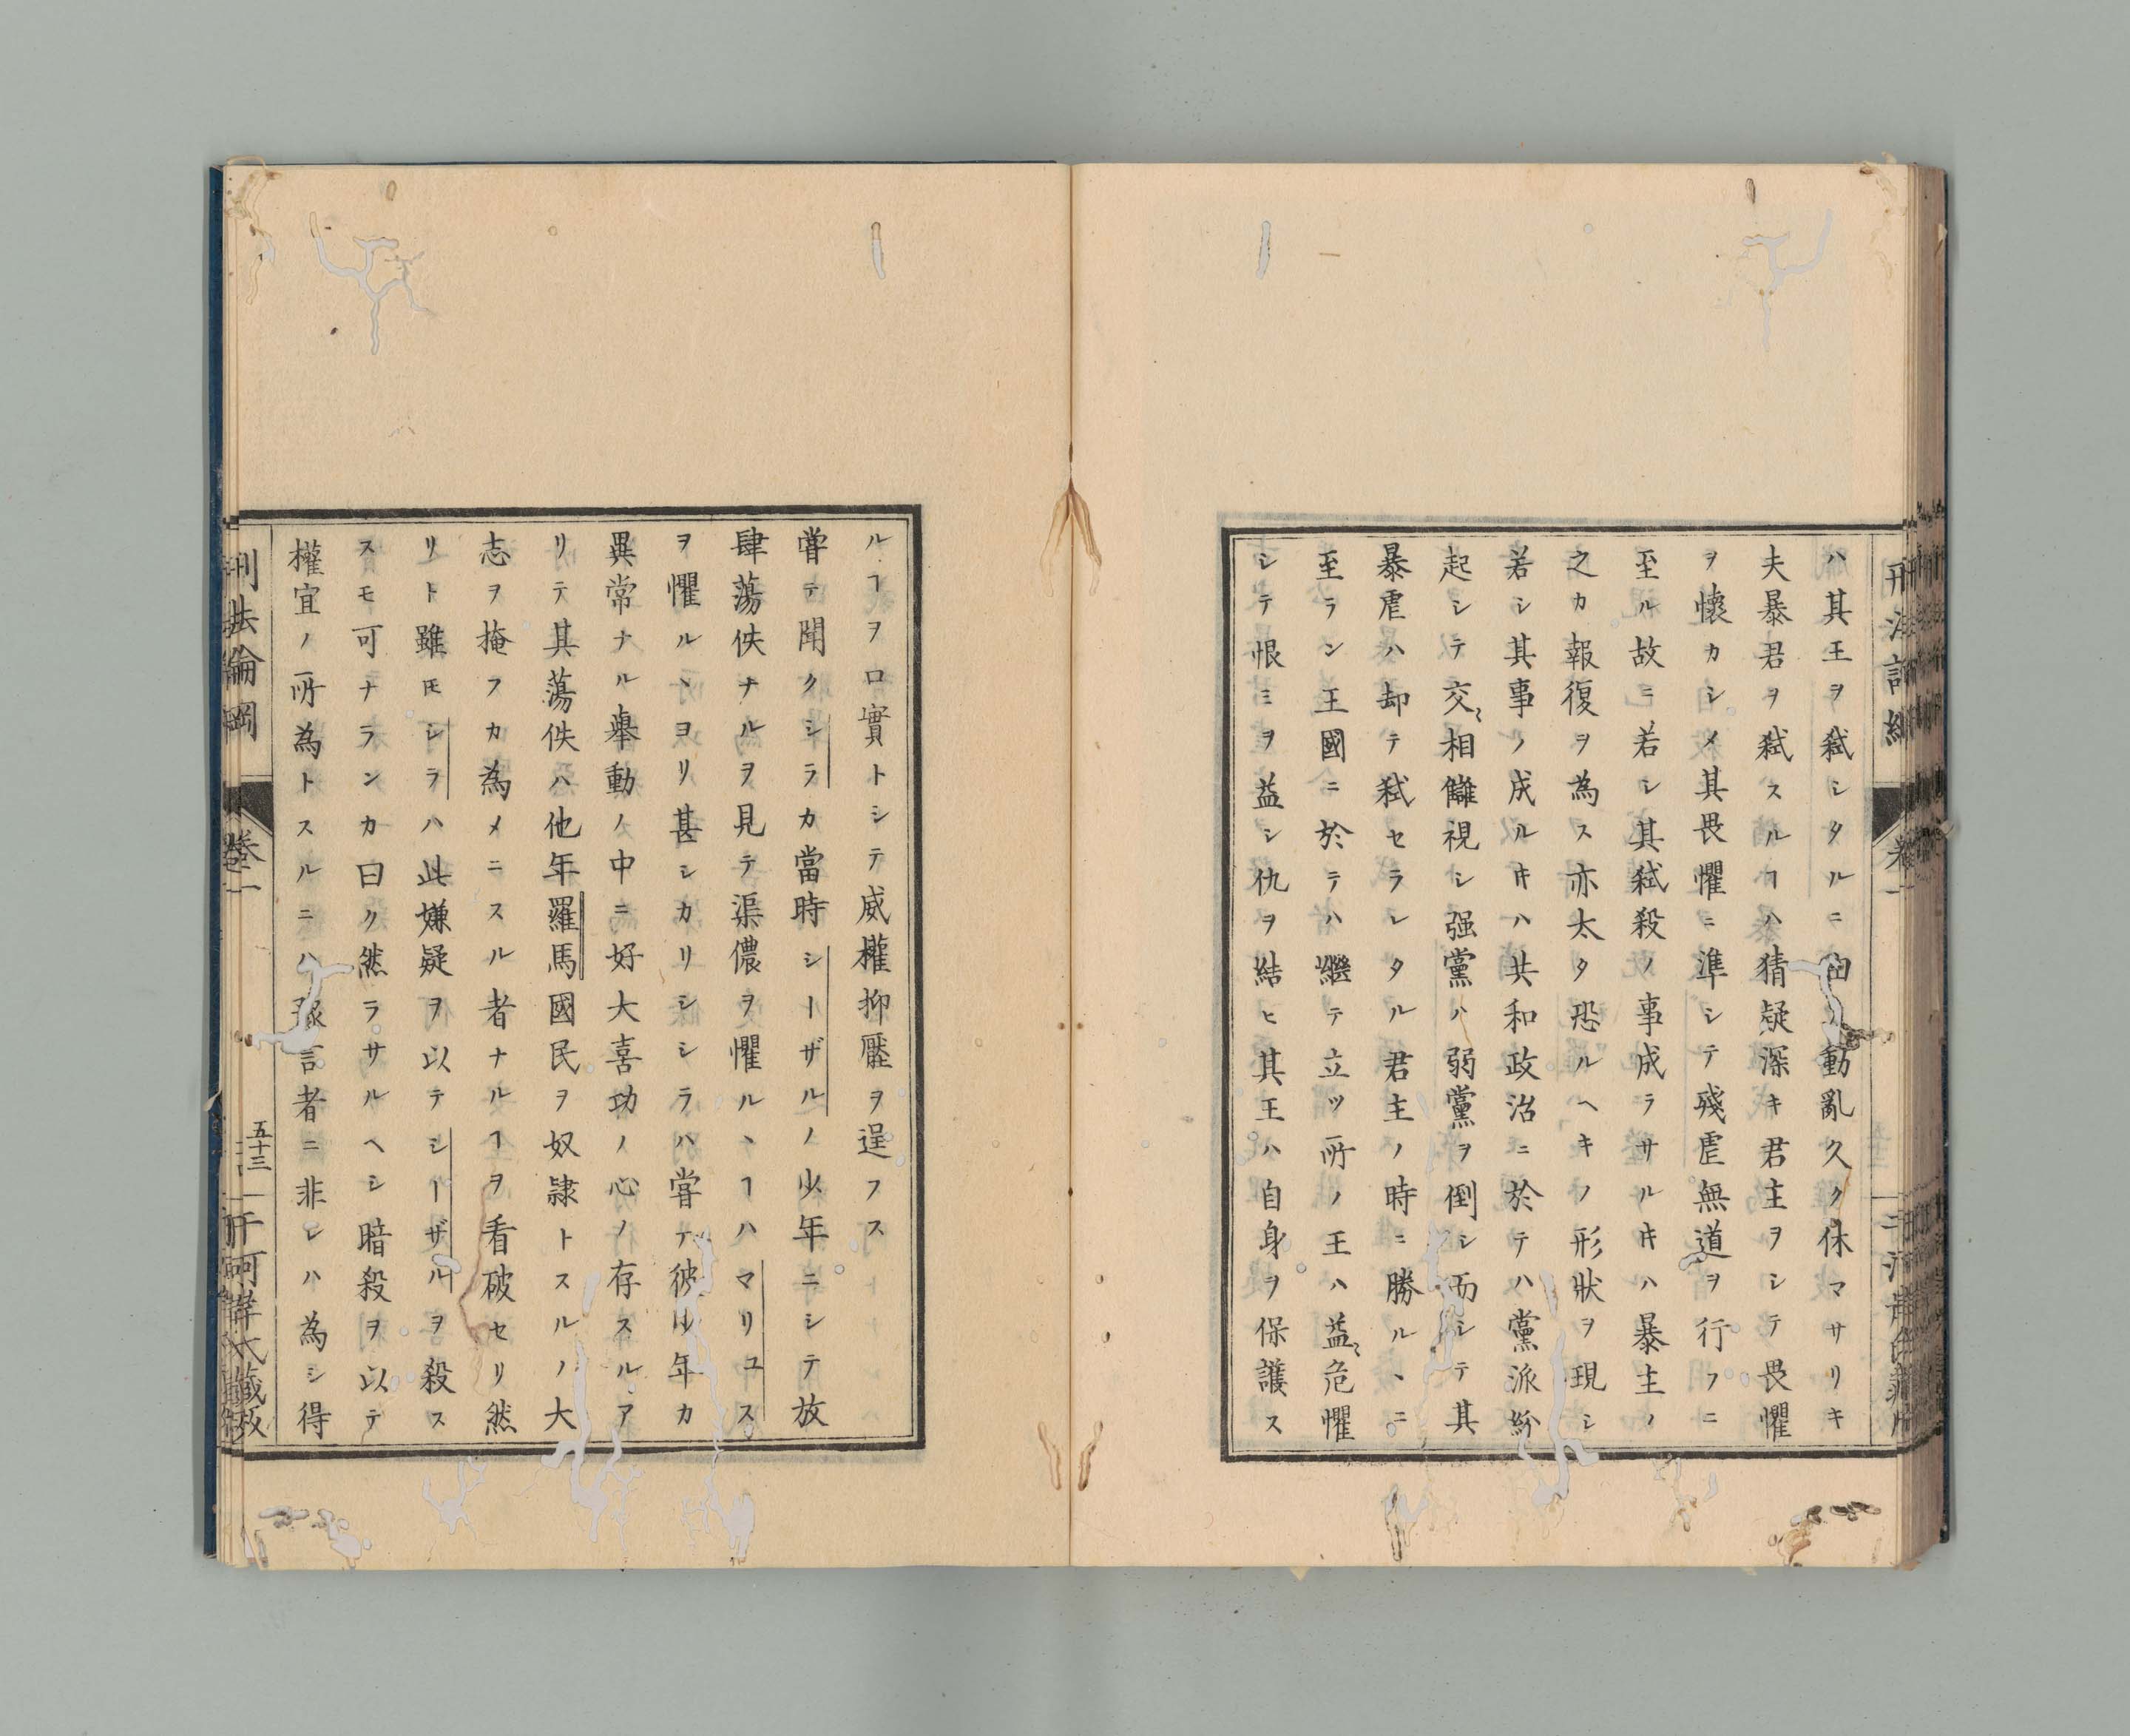 ハ其王ヲ弑シタルニ由リ動亂久ク休マサリキ
夫暴君ヲ弑スルヿハ猜疑深キ君主ヲシテ畏懼
ヲ懷カシメ其畏懼ニ準シテ殘虐無道ヲ行フニ
至ル故ニ若シ其弑殺ノ事成ラサルキハ暴主ノ
之カ報復ヲ為ス亦太タ恐ルヘキノ形狀ヲ現シ
若シ其事ノ成ルキハ共和政治ニ於テハ黨派紛
起シテ交〻相讎視シ强黨ハ弱黨ヲ倒シ而シテ其
暴虐ハ却テ弑セラレタル君主ノ時ニ勝ルヽニ
至ラン王國ニ於テハ繼テ立ツ所ノ王ハ益〻危懼
シテ恨ミヲ益シ仇ヲ結ヒ其王ハ自身ヲ保護ス
ルヿヲ口實トシテ威權抑壓ヲ逞フス
嘗テ聞クシラカ當時シーザルノ少年ニシテ放
肆蕩佚ナルヲ見テ渠儂ヲ懼ルヽヿハマリユス
ヲ懼ルヽヨリ甚シカリシシラハ嘗テ彼少年カ
異常ナル舉動ノ中ニ好大喜功ノ心ノ存スルア
リテ其蕩佚ハ他年羅馬國民ヲ奴隷トスルノ大
志ヲ掩フカ為メニスル者ナルヿヲ看破セリ然
リト雖モシラハ此嫌疑ヲ以テシーザルヲ殺ス
スモ可ナランカ曰ク然ラサルヘシ暗殺ヲ以テ
權宜ノ所為トスルニハ豫言者ニ非レハ為シ得
刑法論綱
卷一
五十三